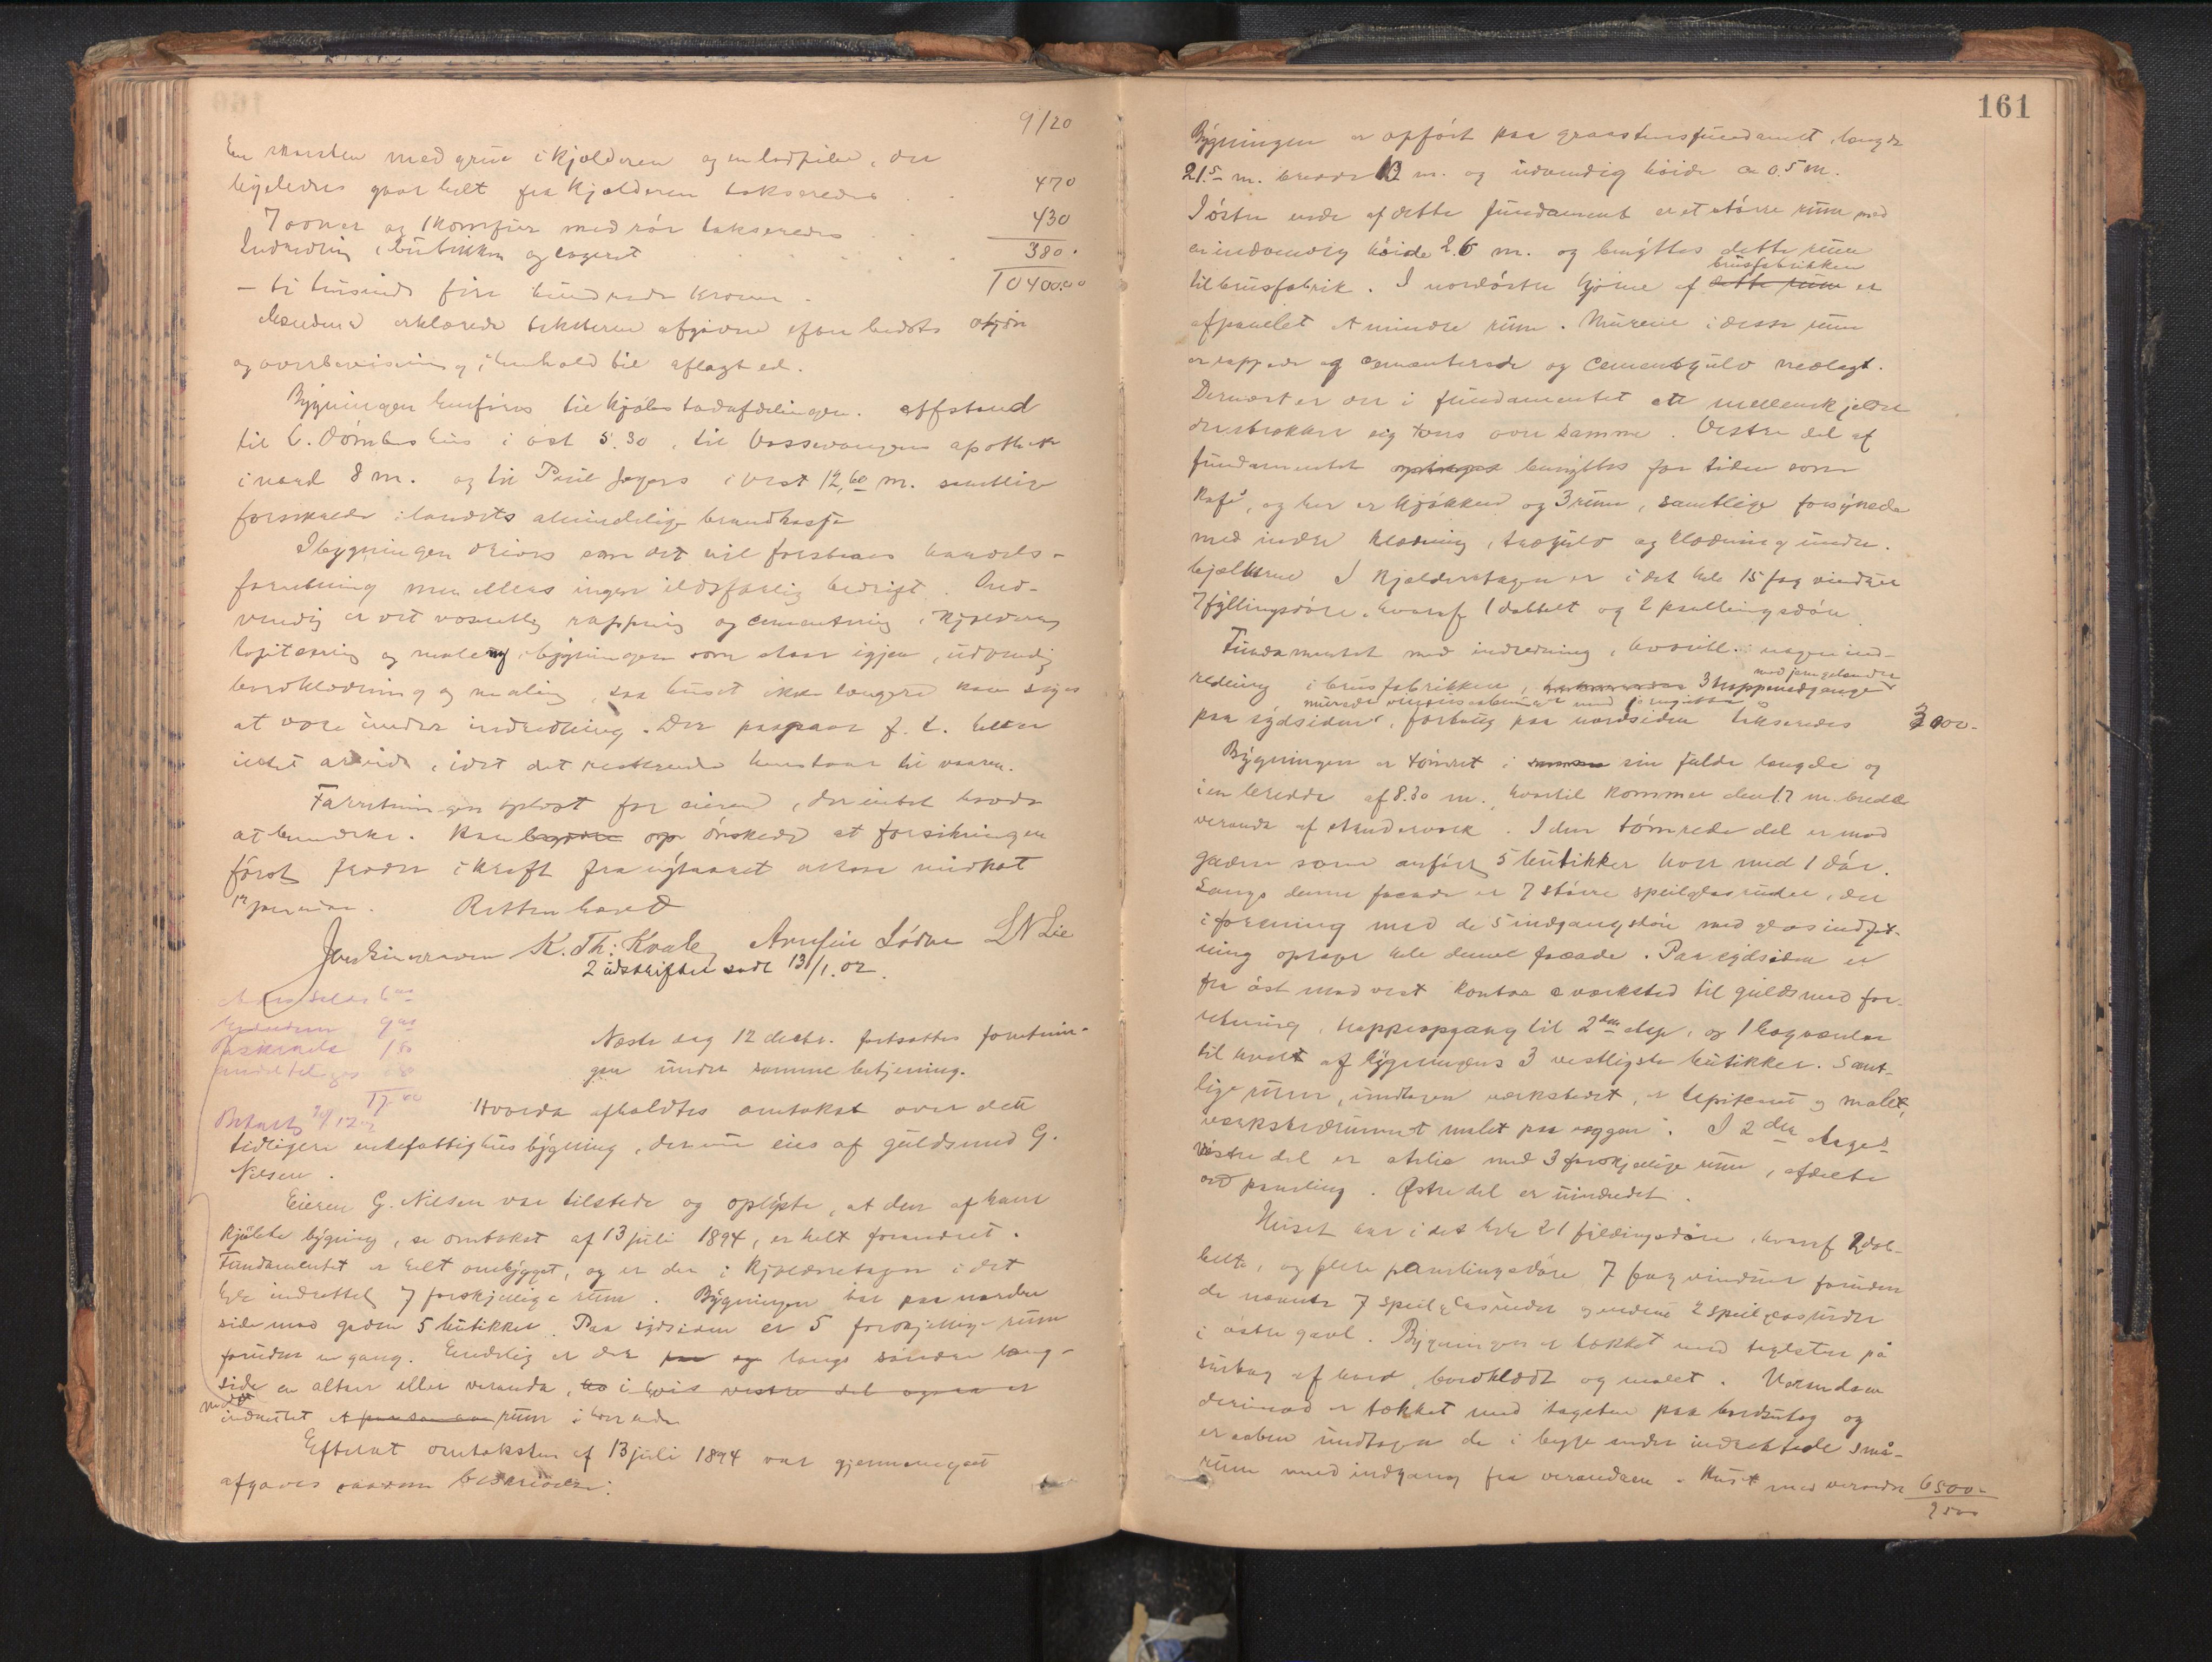 9/20
En skorsten med grue i kjelderen og en ladpibe, der
ligeledes gaar helt fra kjelderen takseredes . . 470
7 ovner og 1 komfur med rör takseredes . . 430
Indredning i butikken og lageret . . . . . 380.
- ti tusinde fire hundrede kroner - 10400.00
Mændene erklærede taksterne afgivne efter bedste skjön
og overbevisning i henhold til aflagt ed.
Bygningen henföres til kjöbstadafdelingen. Afstand
til C. Dömbes hus i öst 5.30, til Vossevangens apothek
i nord 8 m. og til Paul Jegers i vest 12,60 m. samtlige
forsikrede i landets almindelige brandkasse
I bygningen drives som det vil forstaaes handels-
forretning men ellers ingen ildsfarlig bedrift. Ind-
vendig er det væsentlig rapping og cementering i kjelderen
tapitsering og maling i bygningen som staar igjen, udvendig
bordklædning og maling, saa huset ikke længere kan siges
at være under indredning. Der paagaar f. t. heller
intet arbeide, idet det resterende henstaar til vaaren.
Forretningen oplæst for eieren, der intet havde
at bemærke. Han önskede at forsikringen
först træder i kraft fra nytaaret
1ste januar. Retten hævet
K. Th: Kvale Arnfin Lödve L N Lie
2 udskrifter sendt 13/1.02.
Næste dag 12 decbr. fortsattes forretnin-
gen under samme betjening.
Hvorda afholdtes omtakst over den
tidligere enkefattighus bygning, der nu eies af guldsmed G.
Nilsen.
Eieren G. Nilsen var tilstede og oplyste, at den af ham
kjöbte bygning, se omtakst af 13 juli 1894, er helt forandret.
Fundamentet er helt ombygget, og er der i kjelderetagen i det
hele indrettet 7 forskjellige rum. Bygningen har paa nordre
side mod gaden 5 butikker. Paa sydsiden er 5 forskjellige rum
foruden en gang. Endelig er der langs söndre lang-
side en altan eller veranda, i hvis vestre del ogsaa er
indrettet rum i hver ende
Efterat omtaksten af 13 juli 1894 var gjennemgaaet
afgaves saadan beskrivelse:
161
Bygningen er opfört paa graastensfundament, længde
21.5 m. bredde 12 m. og udvendig höide ca 0.5 m.
I östre ende af dette fundament er et större rum med
en indvendig höide 2.6 m. og benyttes dette rum
til brusfabrik. I nordöstre hjörne af brusfabrikken dette rum er
afpanelet et mindre rum. Murene i disse rum
er rappede og cementerede og cementgulv nedlagt.
Dernæst er der i fundamentet et mellemkjelder
der strækker sig tvers over samme. Vestre del af
fundamentet benyttes for tiden som
kafé, og her er kjökken og 3 rum, samtlige forsynede
med indre klædning, trægulv og klædning under
bjælkerne. I kjelderetagen er i det hele 15 fag vinduer
7 fyllingsdöre, hvoraf 1 dobbelt og 2 panelingsdöre.
Fundamentet med indredning, indtil. nogen ind-
redning i brusfabrikken, 3 trappenedgange med jerngelænder
paa sydsiden, fortaug paa nordsiden takseredes 3000-
Bygningen er tömret i sin fulde længde og
i en bredde af 8.30 m., hvortil kommer den 1.7 m. brede
veranda af standerverk. I den tömrede del er mod
gaden som anfört 5 butikker hver med 1 dör.
Langs denne facade er 7 större speilglasruder, der
i forening med de 5 indgangsdöre med glas indfat-
ning optager hele denne facade. Paa sydsiden er
fra öst mod vest kontor & værksted til guldsmed for-
retning, trappeopgang til 2den etage, og 1 bagværelse
til hvert af bygningens 3 vestligste butikker. Samt-
lige rum, undtagen værkstedet, er tapiseret og malet,
værkstedrummet malet paa væggen. I 2den etages
vestre del er atelie med 3 forskjellige rum, afdelte
ved paneling. Östre del er uindredet.
Huset har i det hele 21 fyldingsdöre, hvoraf 2 dob-
belte, og flere panelingsdöre 7 fag vinduer foruden
de nævnte 7 speilglasruder og endnu 2 speilglasruder
i östre gavl. Bygningen er tækket med teglsten på
sutag af bord, bordklædt og malet. Verandaen
derimod er tækket med tagsten paa bordsutag og
er aaben undtagen de i begge ender indrettede små-
rum med indgang fra verandaen. Huset med veranda 6500-
9500